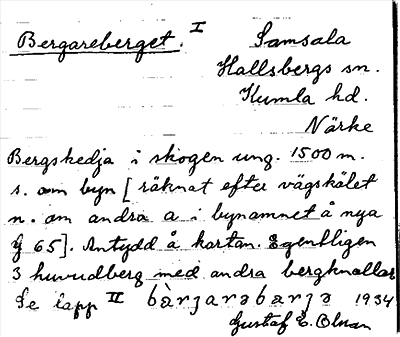 Bergareberget. I
Samsala
Hallsbergs sn.
Kumla hd.
Närke
Bergskedja i skogen ung. 1500 m.
s. om byn [räknat efter vägskälet
n. om andra a i bynamnet å nya
G 65]. Antydd å kartan. Egentligen
3 huvudberg med andra bergknallar
Se lapp II bàrjarəbarjə 1934
Gustaf E. Olsson